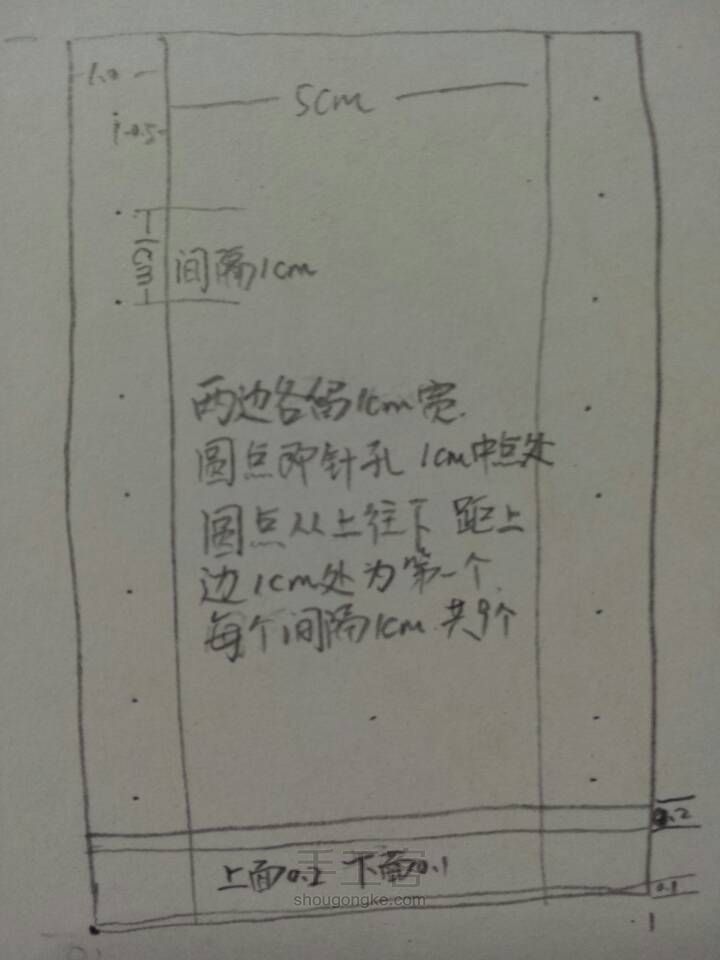 1.0
5cm
0.5
1cm
间隔1cm
两边各留1cm宽
圆点即针孔 1cm中点处
圆点从上往下 距上
边1cm处为第一个
每个间隔1cm 共9个
0.2
上面0.2 下面0.1
0.1
手工客
shougongke.com
1